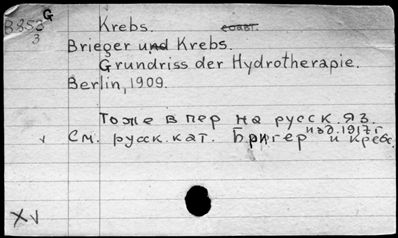 G
B853 Krebs. соавт.
3
Brieger und Krebs.
Grundriss der Hydrotherapie.
Berlin, 1909.
Тоже в пер на русск. яз.
изд. 1917 г
v См. русск. кат. Бригер и кребс.
XV